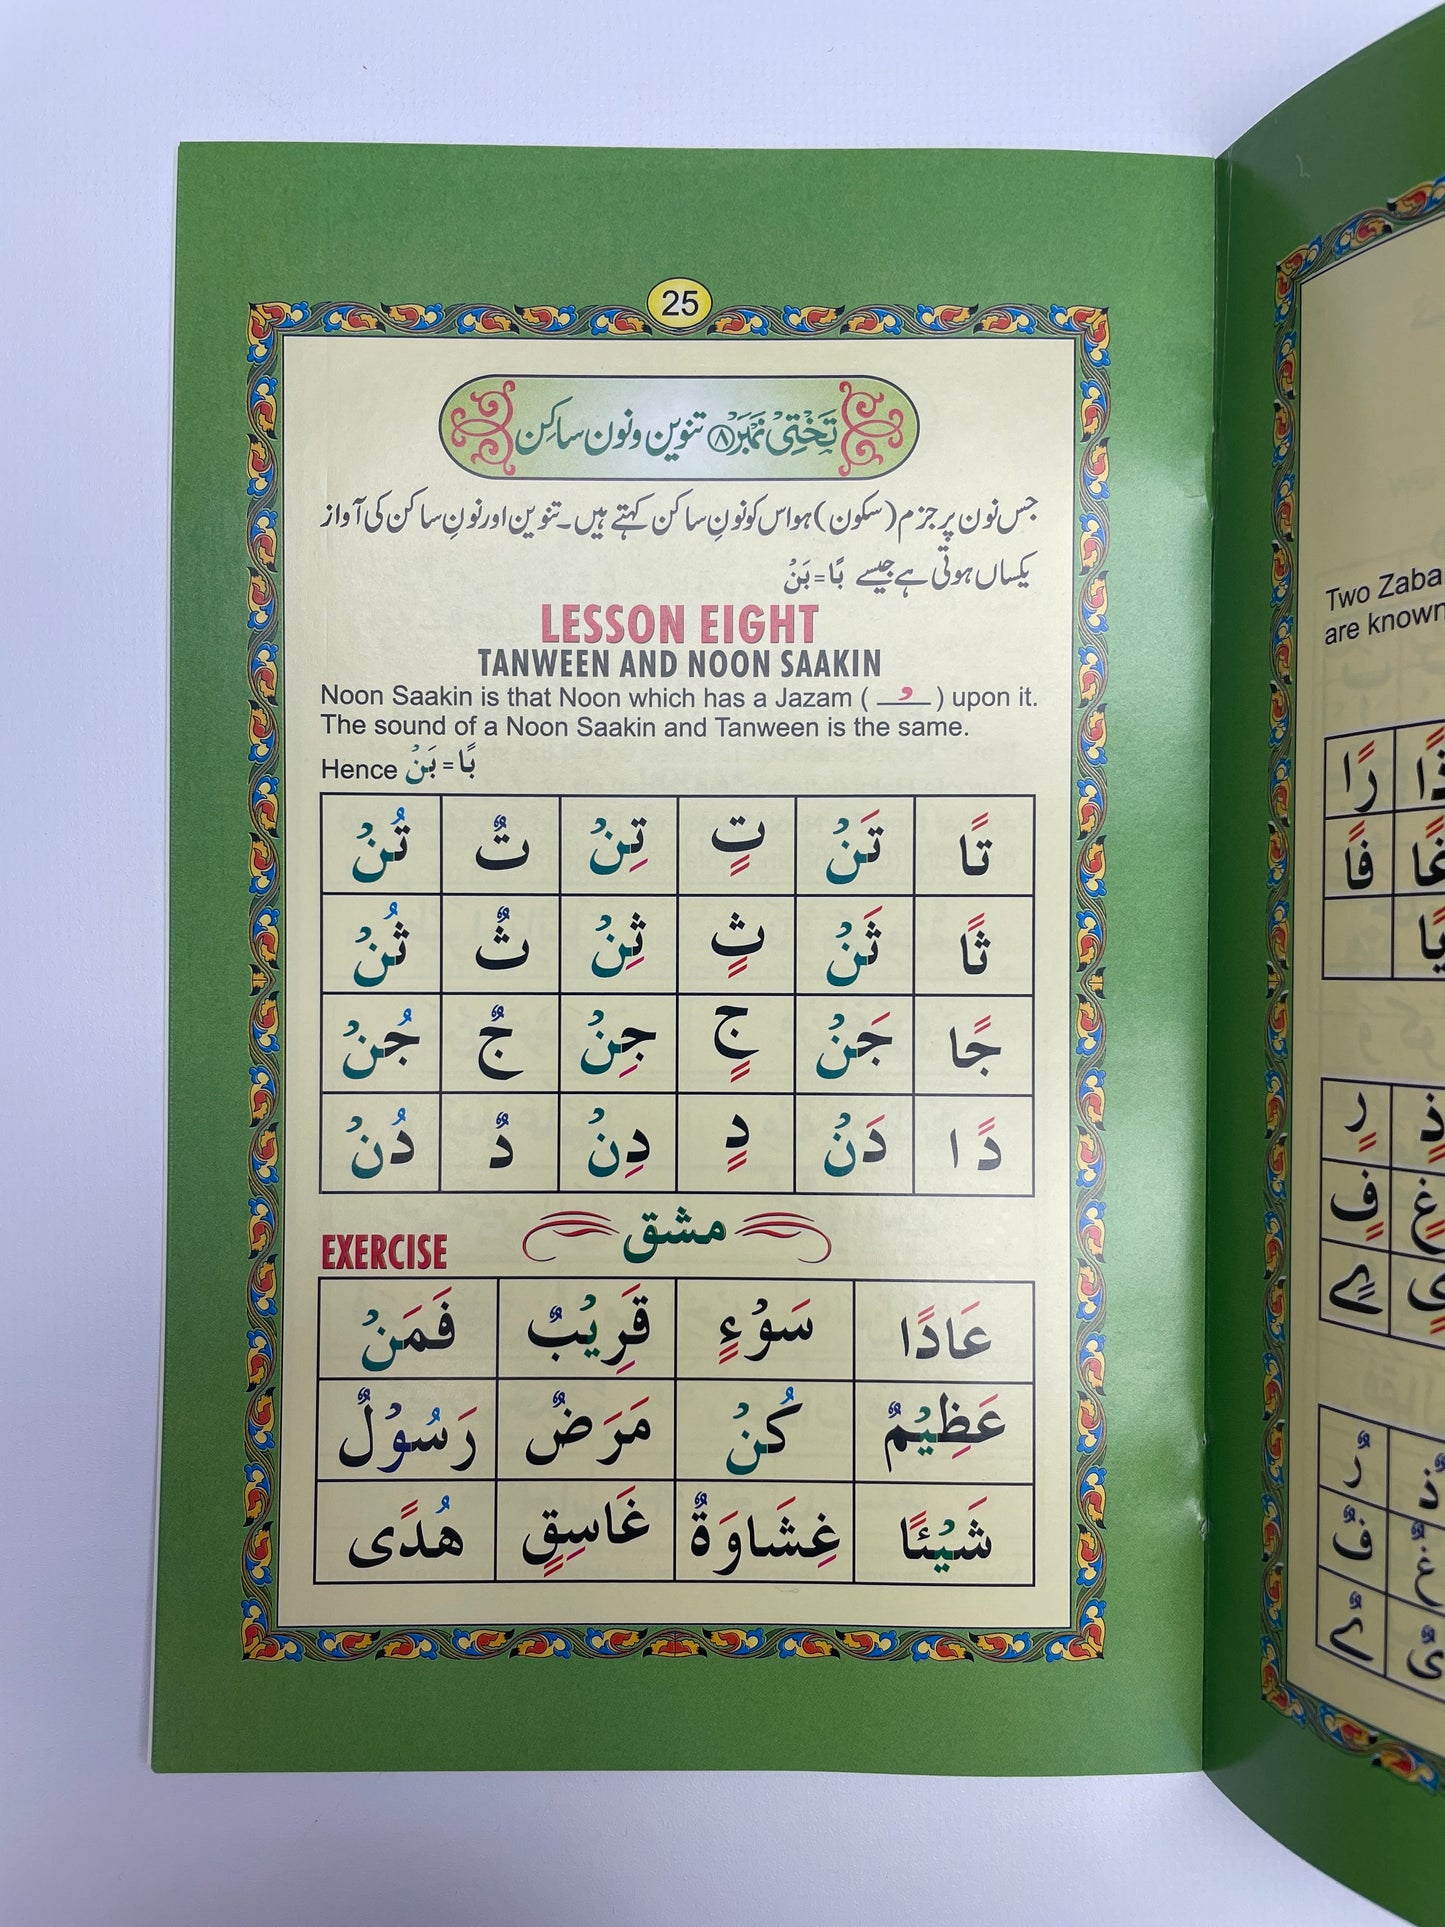 25
تَخْتِیْ نَمْبَرْ ۸ تنوین و نون ساکِن
جس نون پر جزم (سکون) ہو اس کو نونِ ساکن کہتے ہیں۔ تنوین اور نونِ ساکن کی آواز
یکساں ہوتی ہے جیسے بًا = بَنْ
LESSON EIGHT
TANWEEN AND NOON SAAKIN
Noon Saakin is that Noon which has a Jazam ( ـْـ ) upon it.
The sound of a Noon Saakin and Tanween is the same.
Hence بًا = بَنْ
تًا تَنْ تٍ تِنْ تٌ تُنْ
ثًا ثَنْ ثٍ ثِنْ ثٌ ثُنْ
جًا جَنْ جٍ جِنْ جٌ جُنْ
دًا دَنْ دٍ دِنْ دٌ دُنْ
EXERCISE
مشق
عَادًا سَوْءٍ قَرِيْبٌ فَمَنْ
عَظِيْمٌ كُنْ مَرَضٌ رَسُوْلٌ
شَيْئًا غِشَاوَةٌ غَاسِقٍ هُدًى
Two Zaba
are known
ذًا رًا
غًا فًا
يًا
ذٍ رٍ
غٍ فٍ
يٍ ے
رٌ
فٌ